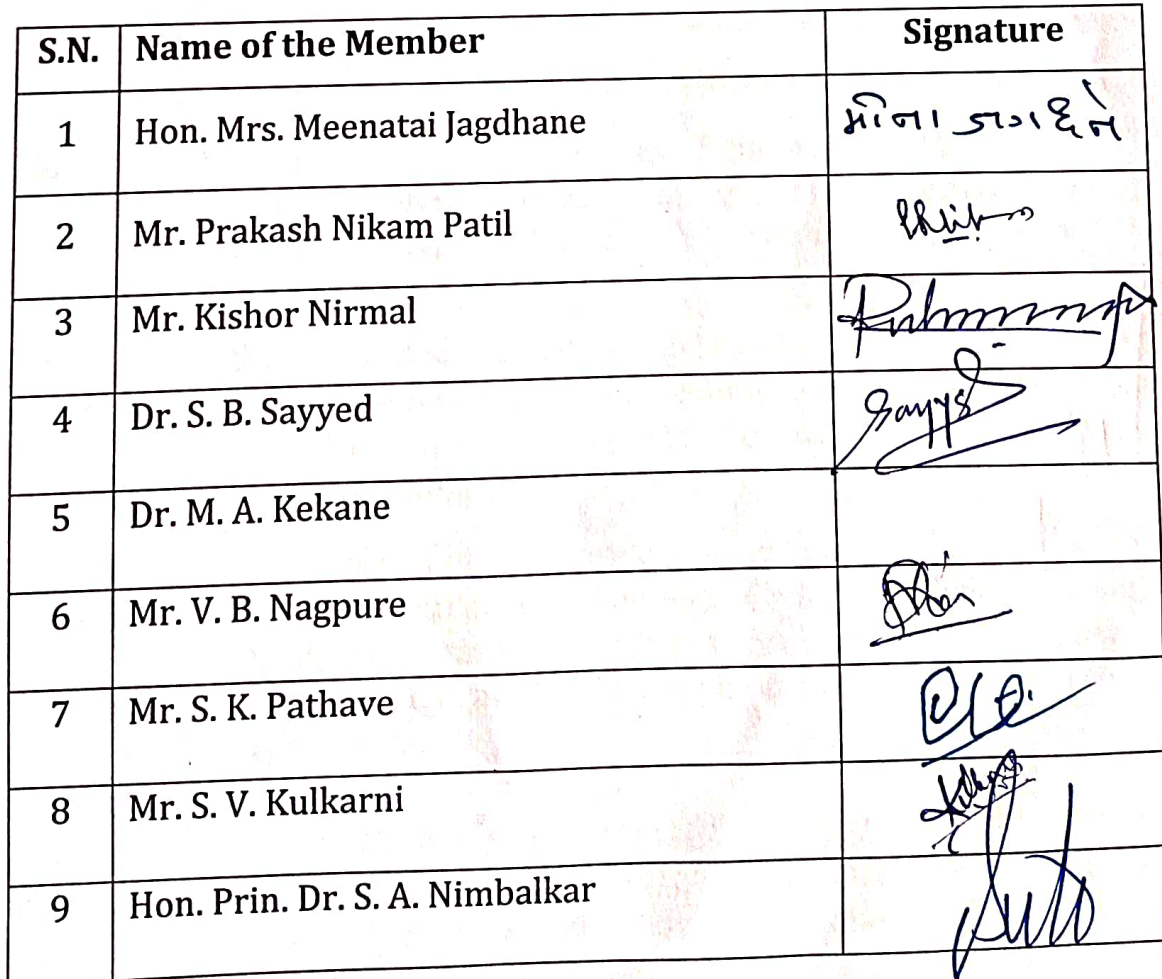 S.N. Name of the Member Signature
1 Hon. Mrs. Meenatai Jagdhane मीना जगधने
2 Mr. Prakash Nikam Patil
3 Mr. Kishor Nirmal
4 Dr. S. B. Sayyed Sayyed
5 Dr. M. A. Kekane
6 Mr. V. B. Nagpure
7 Mr. S. K. Pathave
8 Mr. S. V. Kulkarni
9 Hon. Prin. Dr. S. A. Nimbalkar